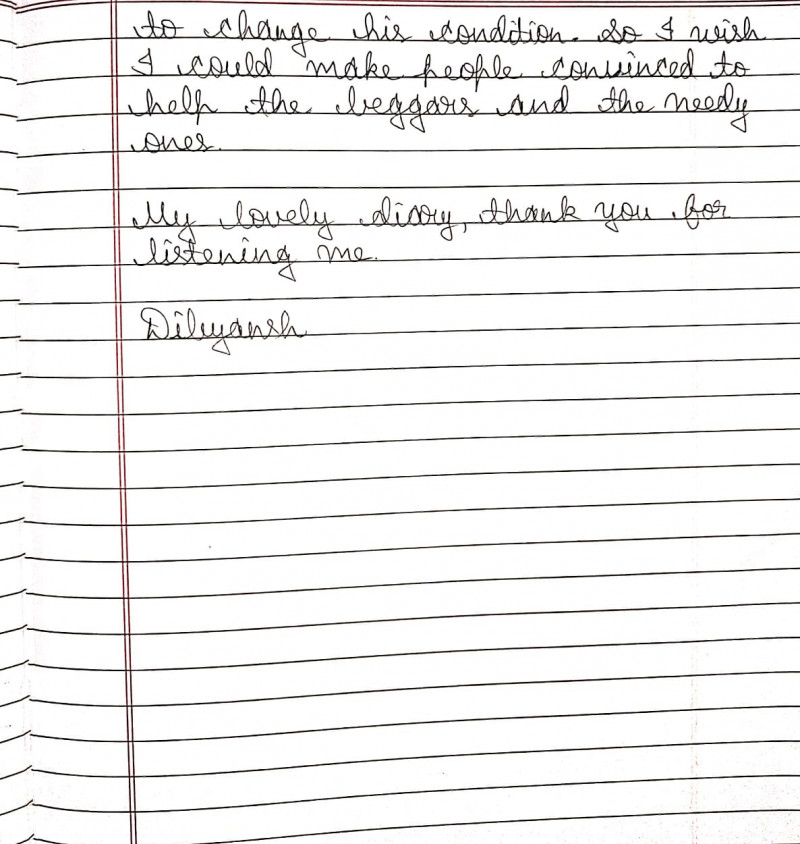 to change his condition. So I wish
I could make people convinced to
help the beggars and the needy
ones.
My lovely diary, thank you for
listening me.
Divyansh